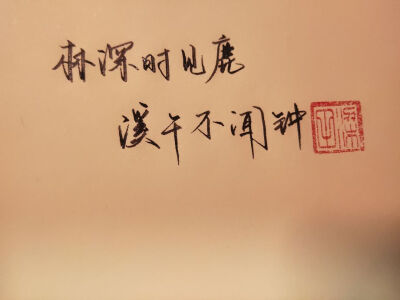 林深时见鹿
溪午不闻钟